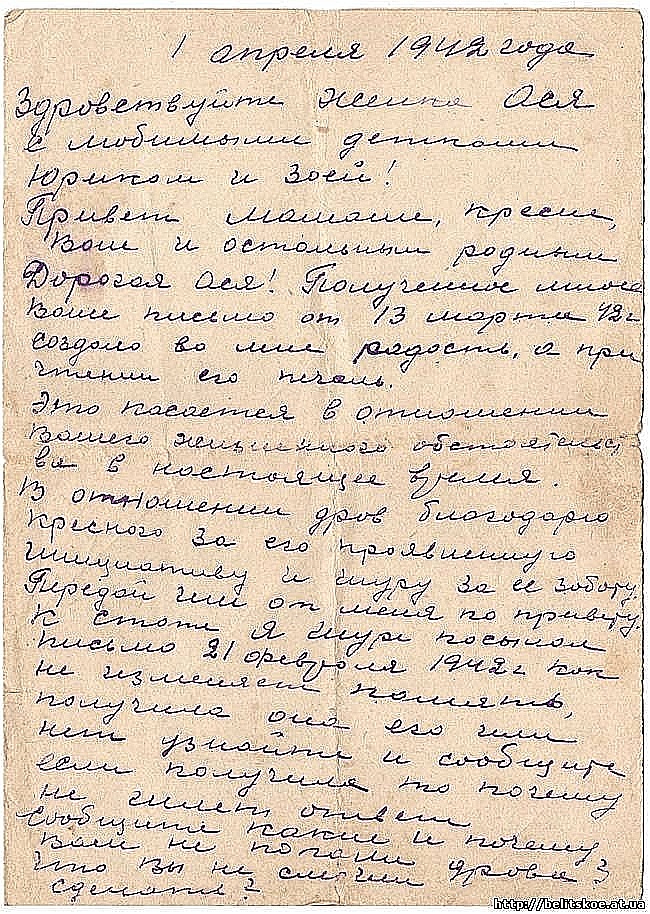 1 апреля 1942 года
Здровствуйте Женка Ася
с любимыми детками
Юриком и Зоей!
Привет мамаше, кресне,
Вале и остальным родным
Дорогая Ася! Полученное мною
Ваше письмо от 13 марта 42 г
создало во мне радость, а при
чтении его печаль.
Это касается в отношении
Вашего жизненного обстоятельст
ва в настоящее время.
В отношении дров благодарю
Кресного за его проявленную
инициативу и Шуру за ее заботу.
Передай им от меня по привету.
К стати я Шуре посылал
письмо 21 февраля 1942 г как
не изменяет память,
получила она его или
нет узнайте и сообщите
если получила то почему
не шлет ответ
Сообщите какие и почему
Вам не дрова
что Вы не смогли
сделать?
http://belitskoe.at.ua